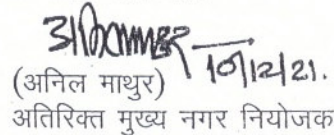 10/12/21.
(अनिल माथुर)
अतिरिक्त मुख्य नगर नियोजक